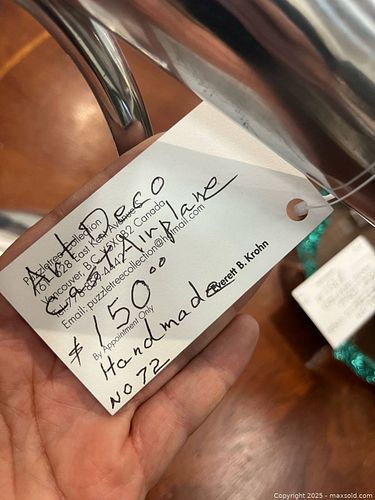 Art Deco
Cast Airplane
$150.00
Handmade
No 72
Puzzletree Collection
East Kent Avenue
Vancouver, B.C. Canada
Email: puzzletreecollection@hotmail.com
By Appointment Only
Everett B. Krohn
Copyright 2025 - maxsold.com